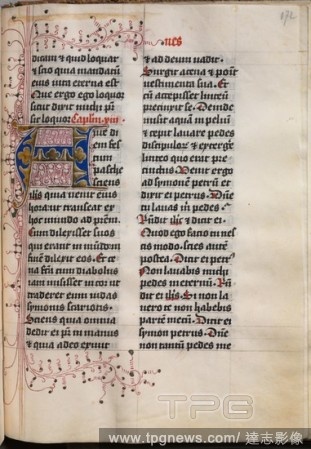 172
nes
dicam et quid loquar
et scio quia mandatū
eius vita eterna est
Que ergo ego loquor
sicut dixit michi pr̄
sic loquor Caplm xiii
Ante di
em fes
tum
pasche
sciens
ihs quia venit eius
hora ut transeat ex
hoc mundo ad prēm
Cum dilexisset suos
qui erant in mūdo in
finē dilexit eos. Et ce
na fcā cum diabolus
iam misisset in cor ut
traderet eum iudas
symonis scariotis.
Sciens quia omnia
dedit ei pr̄ in manus
et quia a deo exivit
et ad deum vadit.
Surgit a cena et poīt
vestimenta sua. Et
cū accepisset linteū
precinxit se. Deinde
misit aquā in peluī
et cepit lavare pedes
discipulor et extergē
linteo quo erat pre
cinctus. Venit ergo
ad symonē petrū et
dixit ei petrus. Dnē
tu lavas m̄ pedes.
Rn̄dit ihs et dixit ei.
Quod ego facio tu nes
cis modo. scies autē
postea. Dicit ei petr
Non lavabis michi
pedes in eternū. Rn̄
dit ei ihs. Si non la
vero te non habebis
partē mecū. Dicit ei
symon petrus. Dnē
non tantū pedes me
TPG
www.tpgnews.com/達志影像